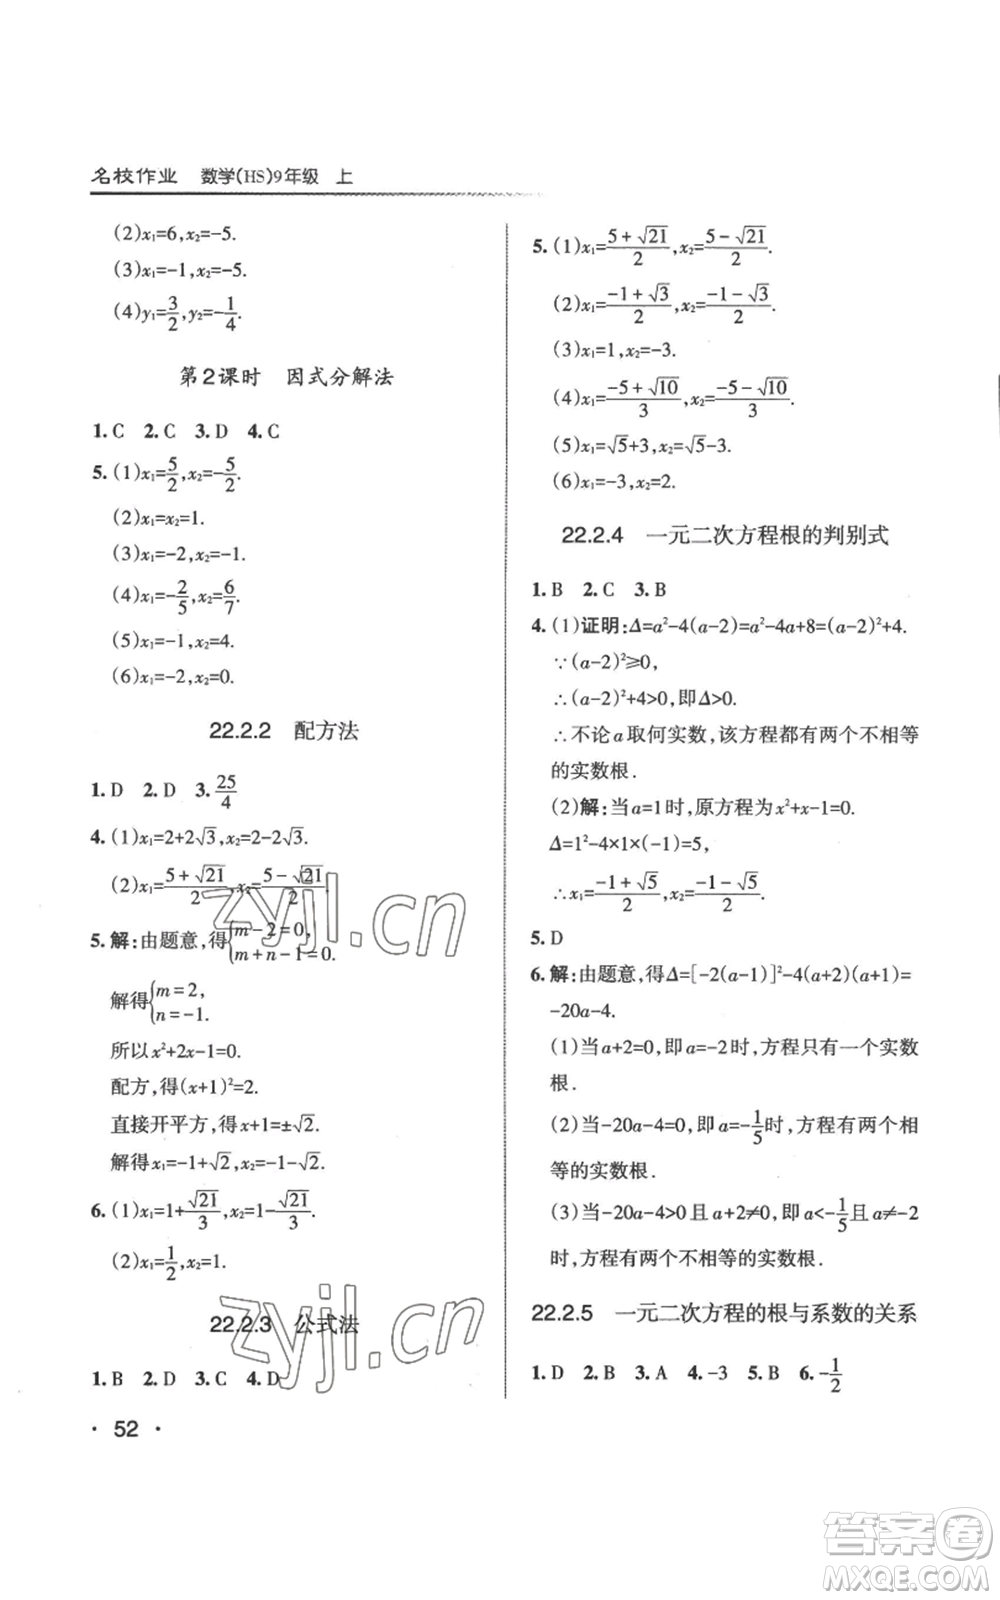 名校作业 数学(HS)9年级 上
(2)x₁=6,x₂=-5.
(3)x₁=-1,x₂=-5.
(4)y₁=3/2,y₂=-1/4.
第2课时 因式分解法
1. C 2. C 3. D 4. C
5. (1)x₁=5/2,x₂=-5/2.
(2)x₁=x₂=1.
(3)x₁=-2,x₂=-1.
(4)x₁=-2/5,x₂=6/7.
(5)x₁=-1,x₂=4.
(6)x₁=-2,x₂=0.
22.2.2 配方法
1. D 2. D 3. 25/4
4. (1)x₁=2+2√3,x₂=2-2√3.
(2)x₁=(5+√21)/2,x₂=(5-√21)/2.
5. 解:由题意,得{m-2=0,
m+n-1=0.
解得{m=2,
n=-1.
所以x²+2x-1=0.
配方,得(x+1)²=2.
直接开平方,得x+1=±√2.
解得x₁=-1+√2,x₂=-1-√2.
6. (1)x₁=1+√21/3,x₂=1-√21/3.
(2)x₁=1/2,x₂=1.
22.2.3 公式法
1. B 2. D 3. C 4. D
· 52 ·
5. (1)x₁=(5+√21)/2,x₂=(5-√21)/2.
(2)x₁=(-1+√3)/2,x₂=(-1-√3)/2.
(3)x₁=1,x₂=-3.
(4)x₁=(-5+√10)/3,x₂=(-5-√10)/3.
(5)x₁=√5+3,x₂=√5-3.
(6)x₁=-3,x₂=2.
22.2.4 一元二次方程根的判别式
1. B 2. C 3. B
4. (1)证明:Δ=a²-4(a-2)=a²-4a+8=(a-2)²+4.
∵(a-2)²≥0,
∴(a-2)²+4>0,即Δ>0.
∴不论a取何实数,该方程都有两个不相等
的实数根.
(2)解:当a=1时,原方程为x²+x-1=0.
Δ=1²-4×1×(-1)=5,
∴x₁=(-1+√5)/2,x₂=(-1-√5)/2.
5. D
6. 解:由题意,得Δ=[-2(a-1)]²-4(a+2)(a+1)=
-20a-4.
(1)当a+2=0,即a=-2时,方程只有一个实数
根.
(2)当-20a-4=0,即a=-1/5时,方程有两个相
等的实数根.
(3)当-20a-4>0且a+2≠0,即a<-1/5且a≠-2
时,方程有两个不相等的实数根.
22.2.5 一元二次方程的根与系数的关系
1. D 2. B 3. A 4. -3 5. B 6. -1/2
zyjl.cn
zyjl.cn
答案圈
MXQE.COM